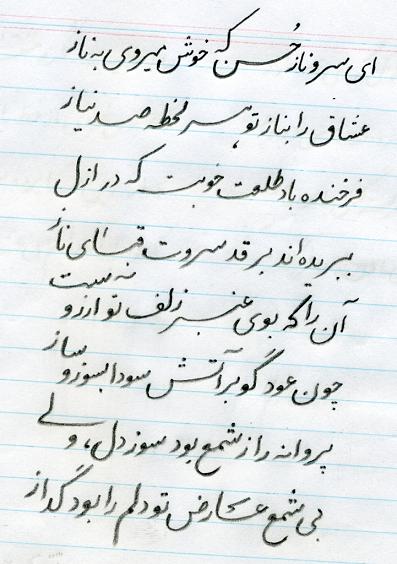 ای سرو ناز حُسن که خوش میروی به ناز
عشاق را بناز تو هر لحظه صد نیاز
فرخنده باد طلعت خوبت که در ازل
ببریده‌اند بر قد سروت قبای ناز
آن را که بوی عنبر زلف تو آرزوست
چون عود گو بر آتش سودا بسوز و ساز
پروانه را ز شمع بود سوز دل، ولی
بی شمع عارض تو دلم را بود گداز